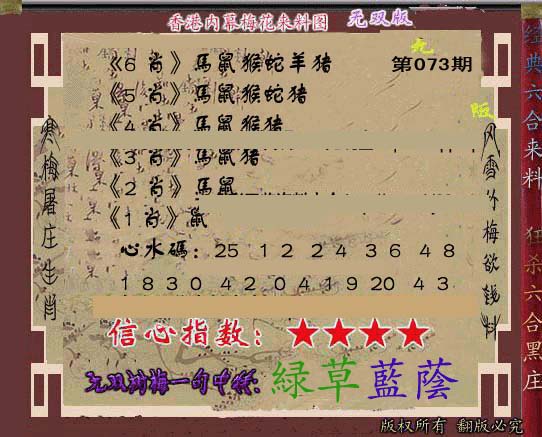 香港内幕梅花来料图 无双版
《6 肖》馬鼠猴蛇羊猪 第073期
《5 肖》馬鼠猴蛇猪
《4 肖》馬鼠猴猪
《3 肖》馬鼠猪
《2 肖》馬鼠
《1 肖》鼠
心水碼：25 1 2 2 4 3 6 4 8
1 8 3 0 4 2 0 4 1 9 20 4 3
信心指数：★★★★
无双湘梅一句中特：綠草藍蔭
寒梅屠庄生肖
经典六合来料 狂杀六合黑庄
版权所有 翻版必究